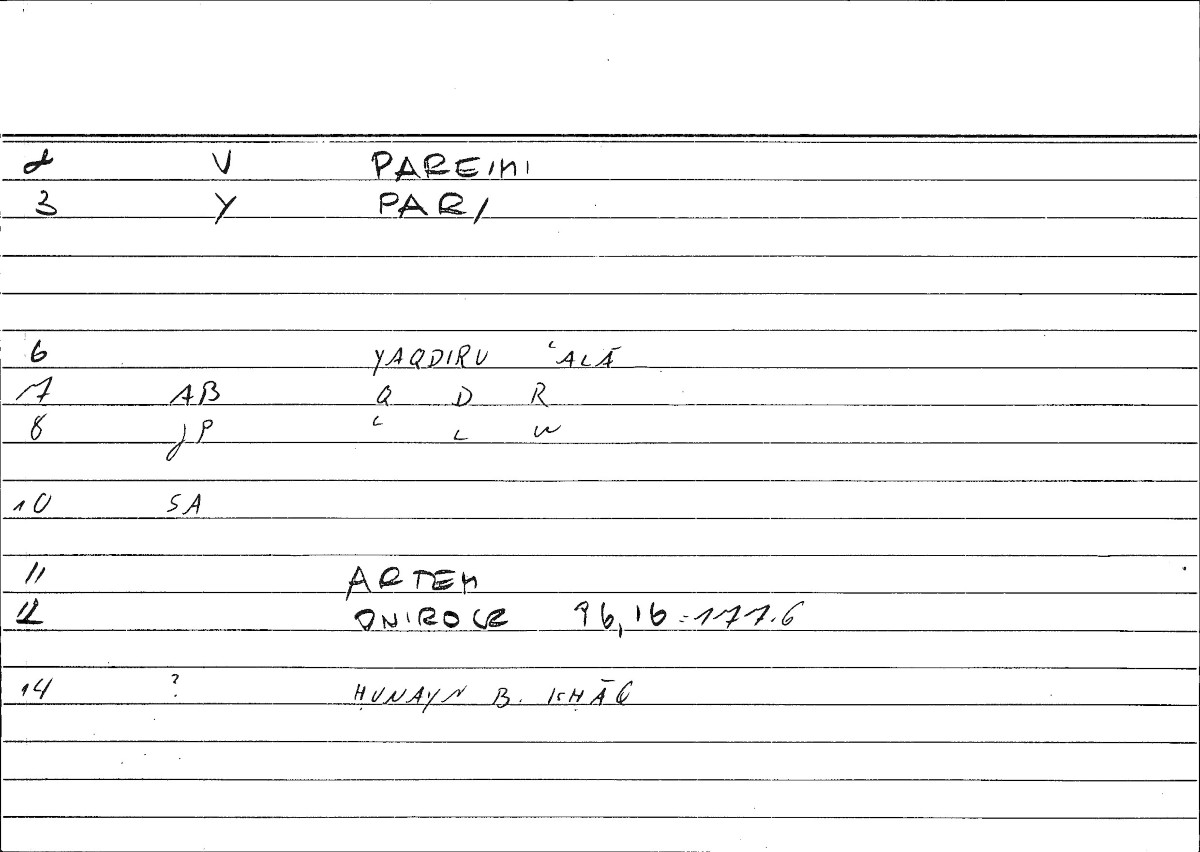 2 V PAREIMI
3 Y PAR/
6 YAQDIRU ʿALĀ
7 AB Q D R
8 JP ʿ L W
10 SA
11 ARTEM
12 ONIROCR 96,16 = 177.6
14 ? ḤUNAYN B. ISḤĀQ